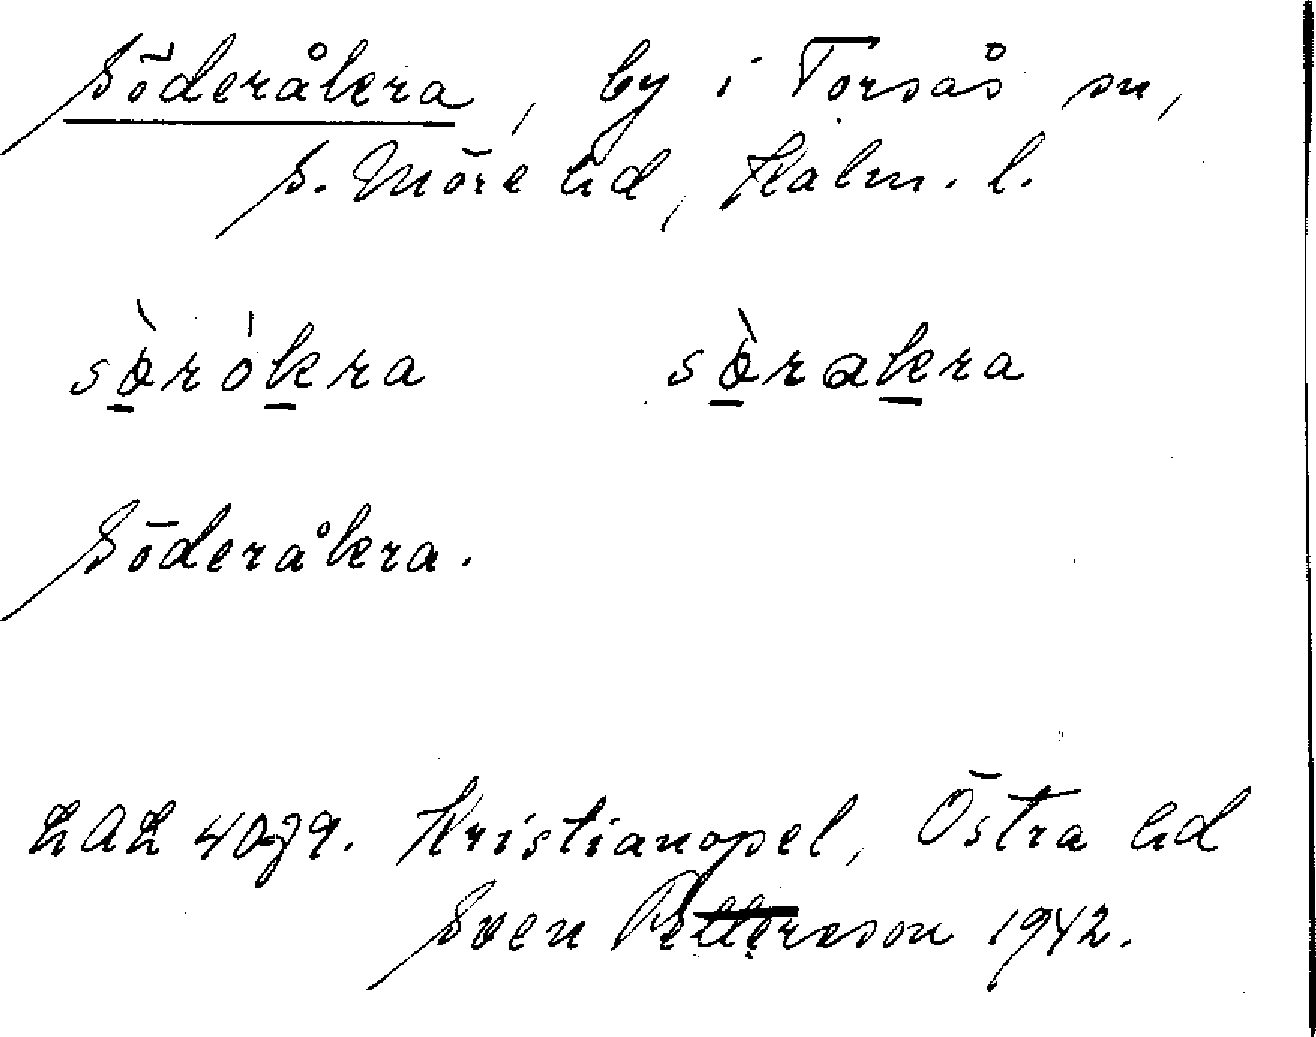 Söderåkra, by i Torsås sn,
S. Möre hd, Kalm. l.
sø̠̀rók̠ra sø̠̀rak̠ra
Söderåkra.
LAL 4079. Kristianopel, Östra hd
Sven Pettersson 1942.